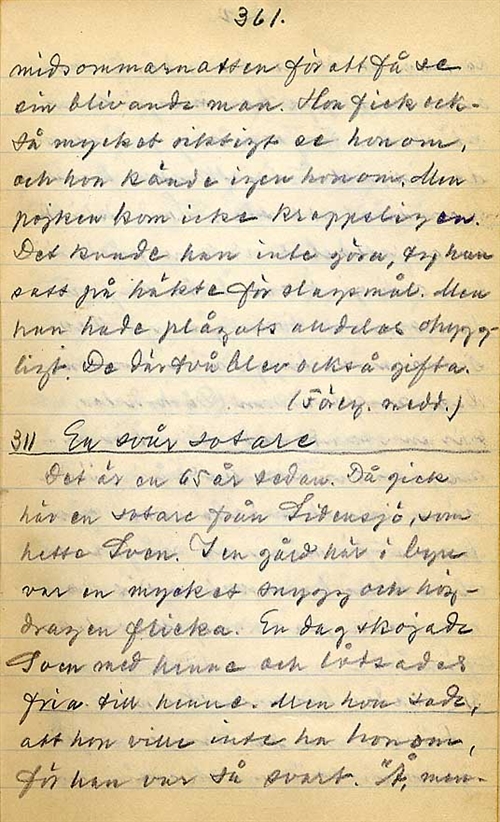 361.
midsommarnatten för att få se
sin blivande man. Hon fick ock-
så mycket riktigt se honom,
och hon kände igen honom. Men
pojken kom icke kroppsligen.
Det kunde han inte göra, ty han
satt på häkte för slagsmål. Men
han hade plågats alldeles ohygg-
ligt. De där två blev också gifta.
(Föreg. medd.)
311 En svår sotare
Det är en 65 år sedan. Då gick
här en sotare från Lidensjö, som
hette Sven. I en gård här i byn
var en mycket snygg och hög-
dragen flicka. En dag skojade
Sven med henne och låtsades
fria till henne. Men hon sade,
att hon ville inte ha honom,
för han var så svart. "Å, men-